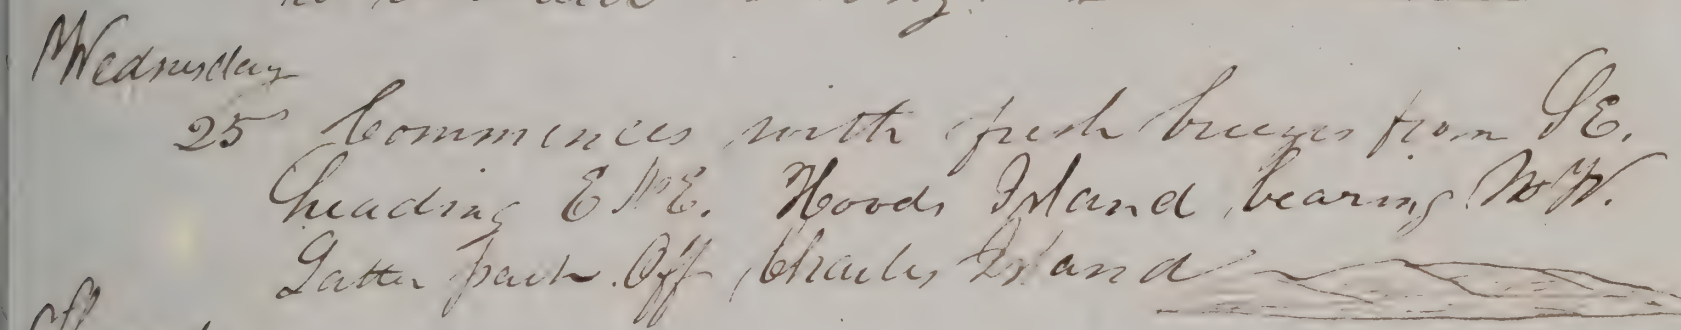 Wednesday
25 Commences with fresh breezes from SE.
heading ENE. Hoods Island bearing NW.
Latter part Off Charles Island